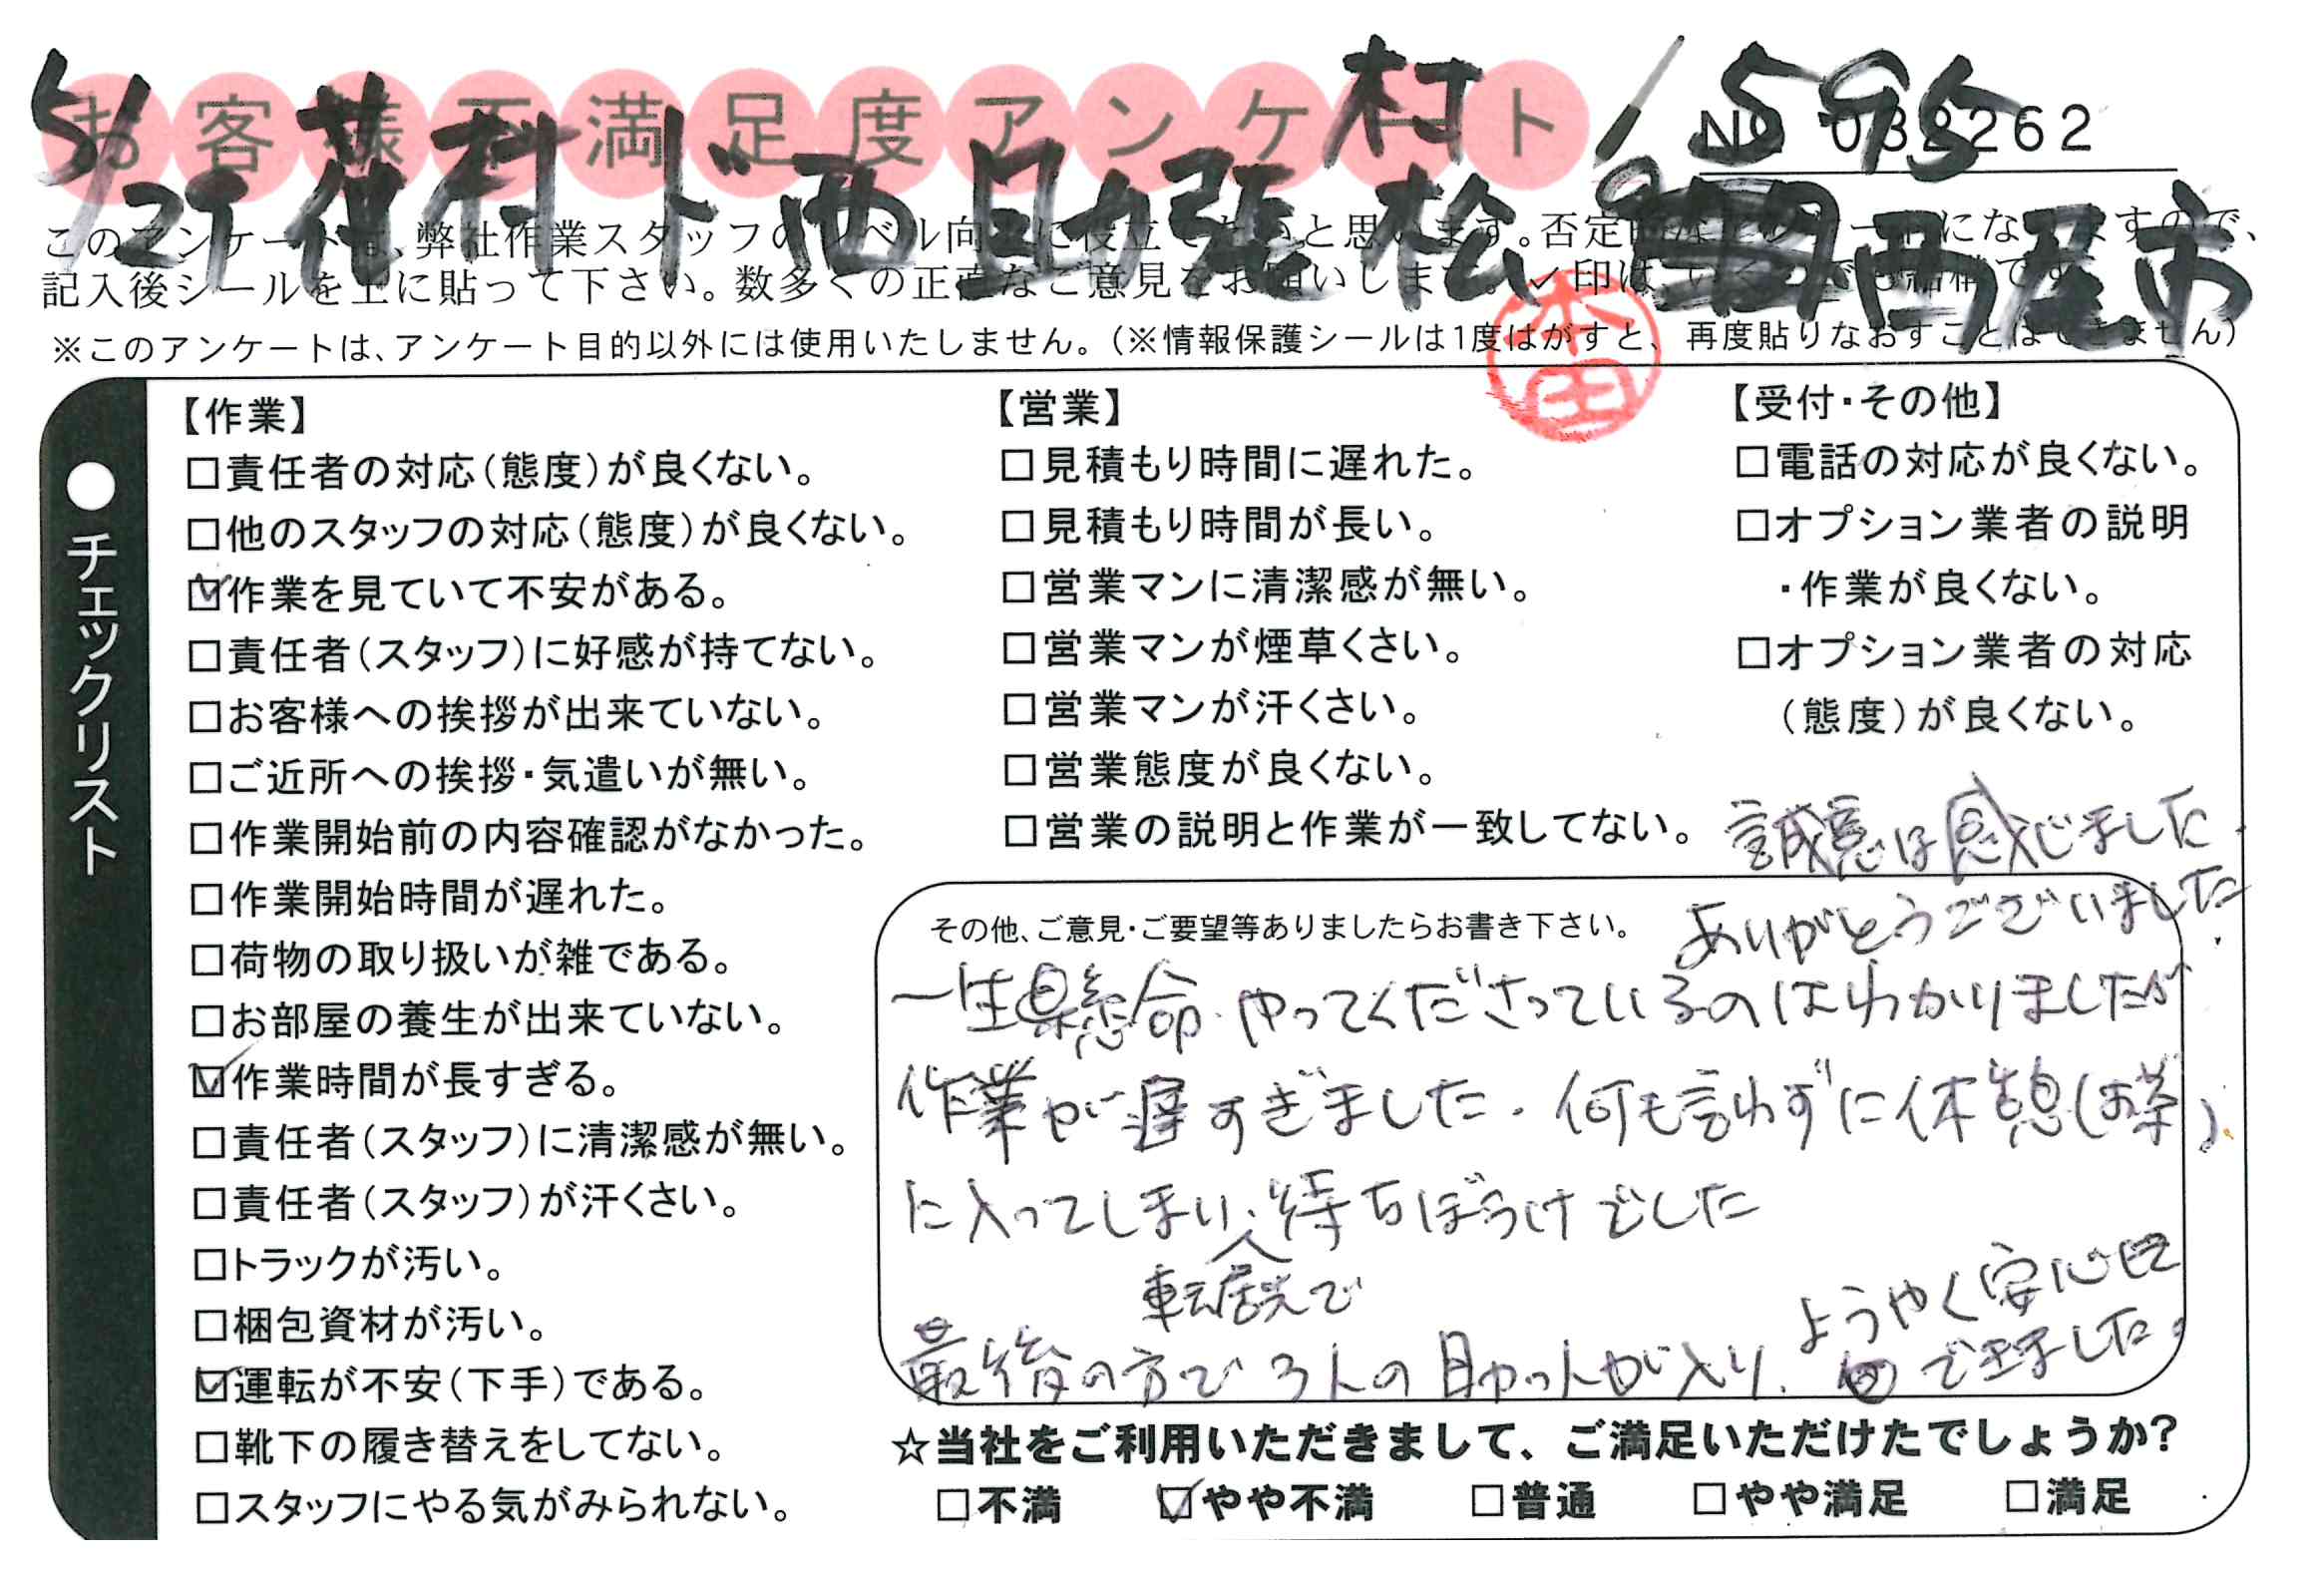 お客様不満足度アンケート
No 032262
5/25 荏科ド 西 助 張 村 松 / 595 西尾市
このアンケートは、弊社作業スタッフのレベル向上に役立てたいと思います。否定的なアンケートになりますので、
記入後シールを上に貼って下さい。数多くの正直なご意見をお願いします。✓印は、いくつでも結構です。
※このアンケートは、アンケート目的以外には使用いたしません。(※情報保護シールは1度はがすと、再度貼りなおすことはできません)
●チェックリスト
【作業】
□責任者の対応(態度)が良くない。
□他のスタッフの対応(態度)が良くない。
☑作業を見ていて不安がある。
□責任者(スタッフ)に好感が持てない。
□お客様への挨拶が出来ていない。
□ご近所への挨拶・気遣いが無い。
□作業開始前の内容確認がなかった。
□作業開始時間が遅れた。
□荷物の取り扱いが雑である。
□お部屋の養生が出来ていない。
☑作業時間が長すぎる。
□責任者(スタッフ)に清潔感が無い。
□責任者(スタッフ)が汗くさい。
□トラックが汚い。
□梱包資材が汚い。
☑運転が不安(下手)である。
□靴下の履き替えをしてない。
□スタッフにやる気がみられない。
【営業】
□見積もり時間に遅れた。
□見積もり時間が長い。
□営業マンに清潔感が無い。
□営業マンが煙草くさい。
□営業マンが汗くさい。
□営業態度が良くない。
□営業の説明と作業が一致してない。
【受付・その他】
□電話の対応が良くない。
□オプション業者の説明
・作業が良くない。
□オプション業者の対応
(態度)が良くない。
その他、ご意見・ご要望等ありましたらお書き下さい。
一生懸命やってくださっているのはわかりましたが
作業が遅すぎました。何も言わずに休憩(お茶)
に入ってしまい、待ちぼうけでした
転居先で
最後の方で3人の助っ人が入り、
ようやく安心
できました。
誠意は感じました
ありがとうございました
☆当社をご利用いただきまして、ご満足いただけたでしょうか?
□不満 ☑やや不満 □普通 □やや満足 □満足